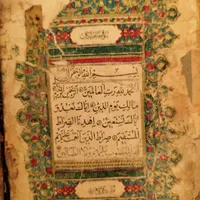 بسم الله الرحمن الرحيم
الحمد لله رب العالمين الرحمن الرحيم
مالك يوم الدين اياك نعبد و
اياك نستعين اهدنا الصراط
المستقيم صراط الذين انعمت عليهم